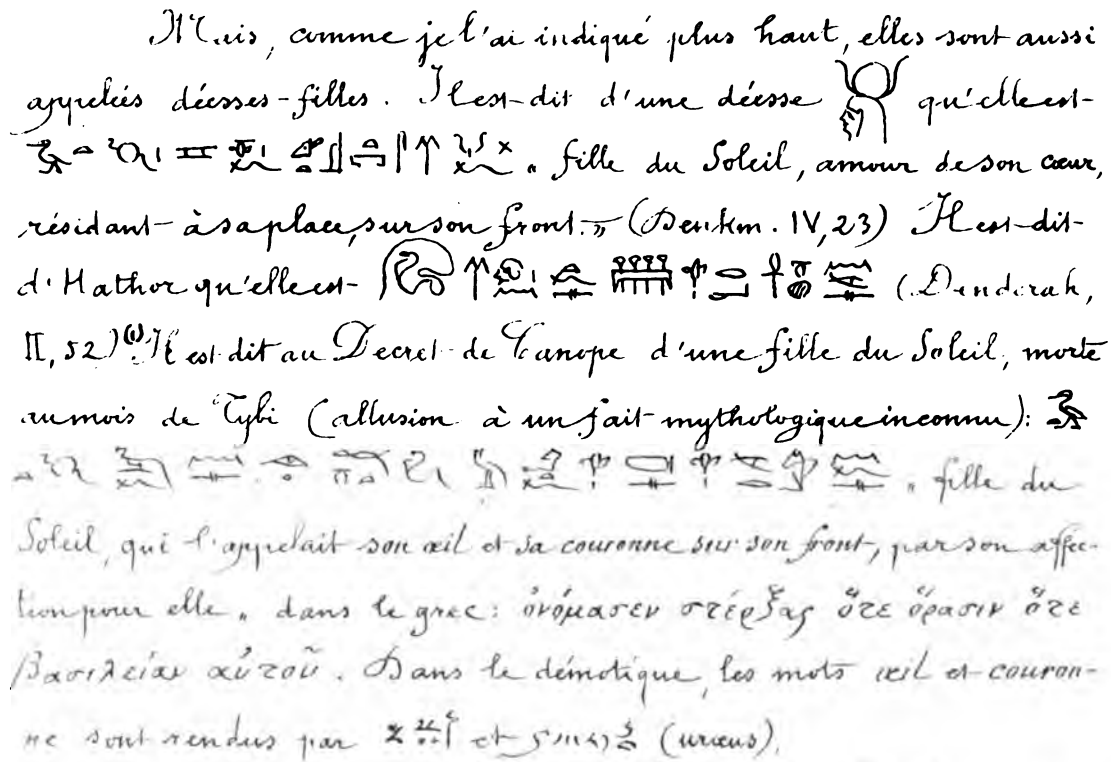 Mais, comme je l'ai indiqué plus haut, elles sont aussi
appelées déesses-filles. Il est dit d'une déesse qu'elle est
„ fille du Soleil, amour de son cœur,
résidant à sa place, sur son front. „ (Denkm. IV, 23) Il est dit
d'Hathor qu'elle est (Denderah,
II, 52)(1). Il est dit au Decret de Canope d'une fille du Soleil, morte
au mois de Tybi (allusion à un fait mythologique inconnu):
„ fille du
Soleil, qui l'appelait son œil et sa couronne sur son front, par son affec-
tion pour elle „ dans le grec: ὀνόμασεν στέρξας ὅτε ὅρασιν ὅτε
βασιλείαν αὐτοῦ. Dans le démotique, les mots œil et couron-
ne sont rendus par et (uræus).